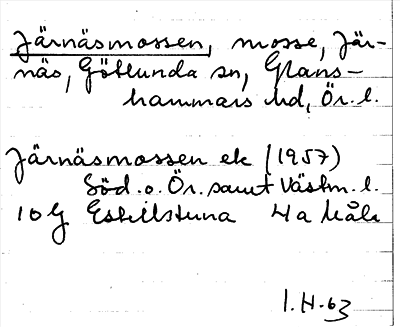 Järnäsmossen, mosse, Jär-
näs, Götlunda sn, Glans-
hammars hd, Ör. l.
Järnäsmossen ek (1957)
Söd. o. Ör. samt Västm. l.
10 G Eskilstuna 4a Måle
I.H. 63